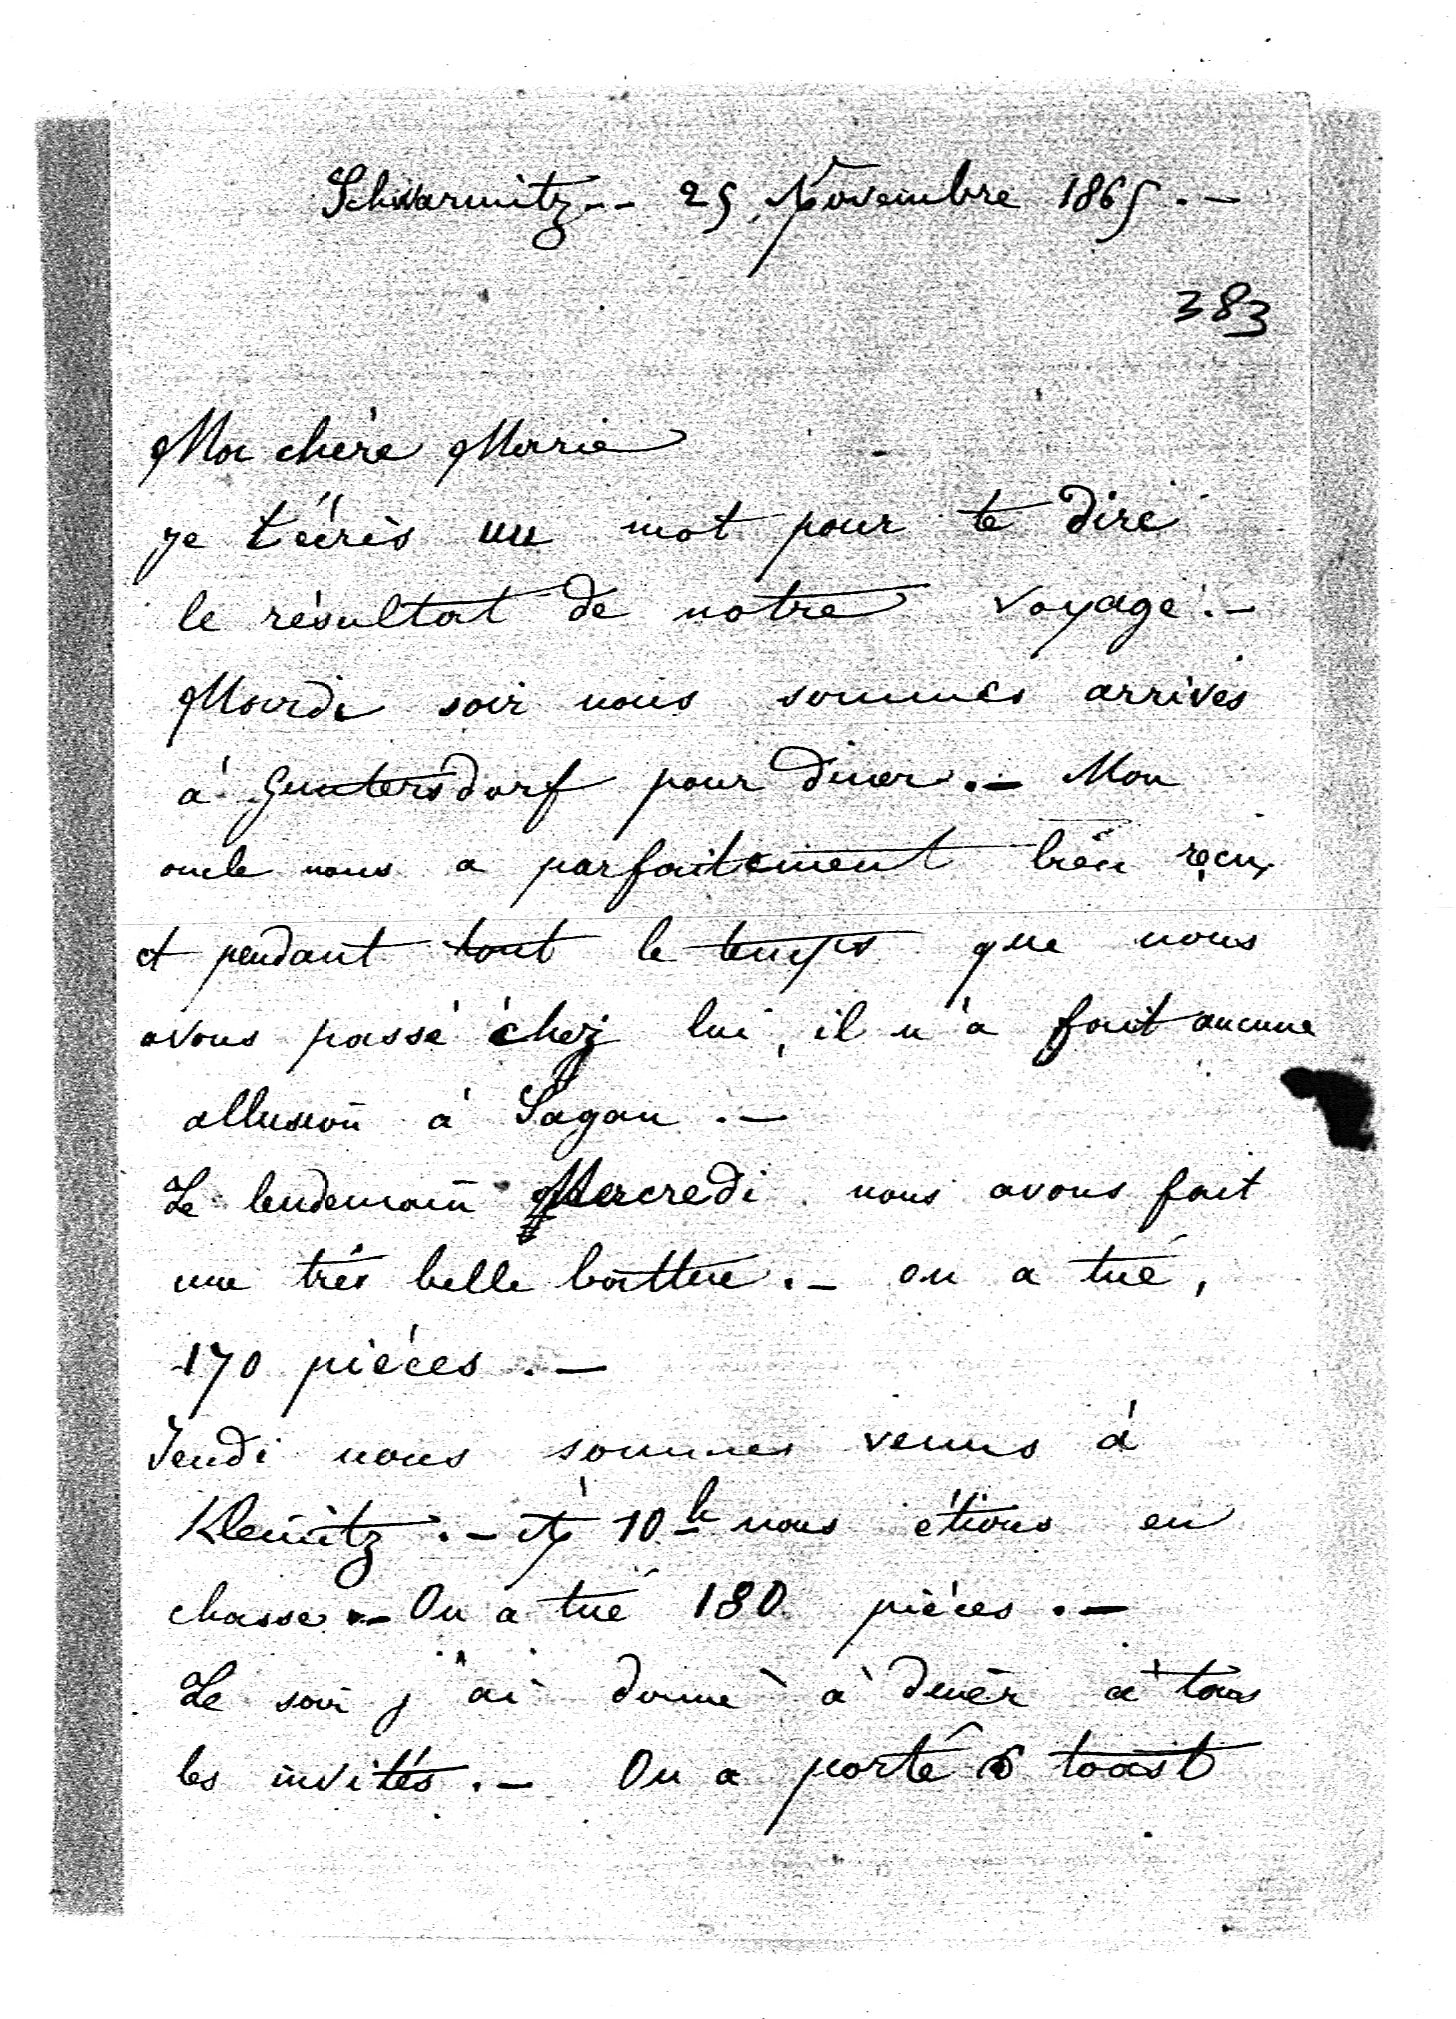 Schwarmitz -- 25 Novembre 1865 . -
383
Ma chère Marie
je t'écris un mot pour te dire
le résultat de notre voyage . -
Mardi soir nous sommes arrivés
à Guntersdorf pour diner . - Mon
oncle nous a parfaitement bien reçu,
et pendant tout le temps que nous
avons passé chez lui, il n'a fait aucune
allusion à Sagan . -
Le lendemain Mercredi nous avons fait
une très belle battue . - on a tué,
170 pièces . -
Jeudi nous sommes venus à
Kleinitz . - A 10 h nous étions en
chasse - On a tué 180 pièces . -
Le soir j'ai donné à diner à tous
les invités . - On a porté 6 toast